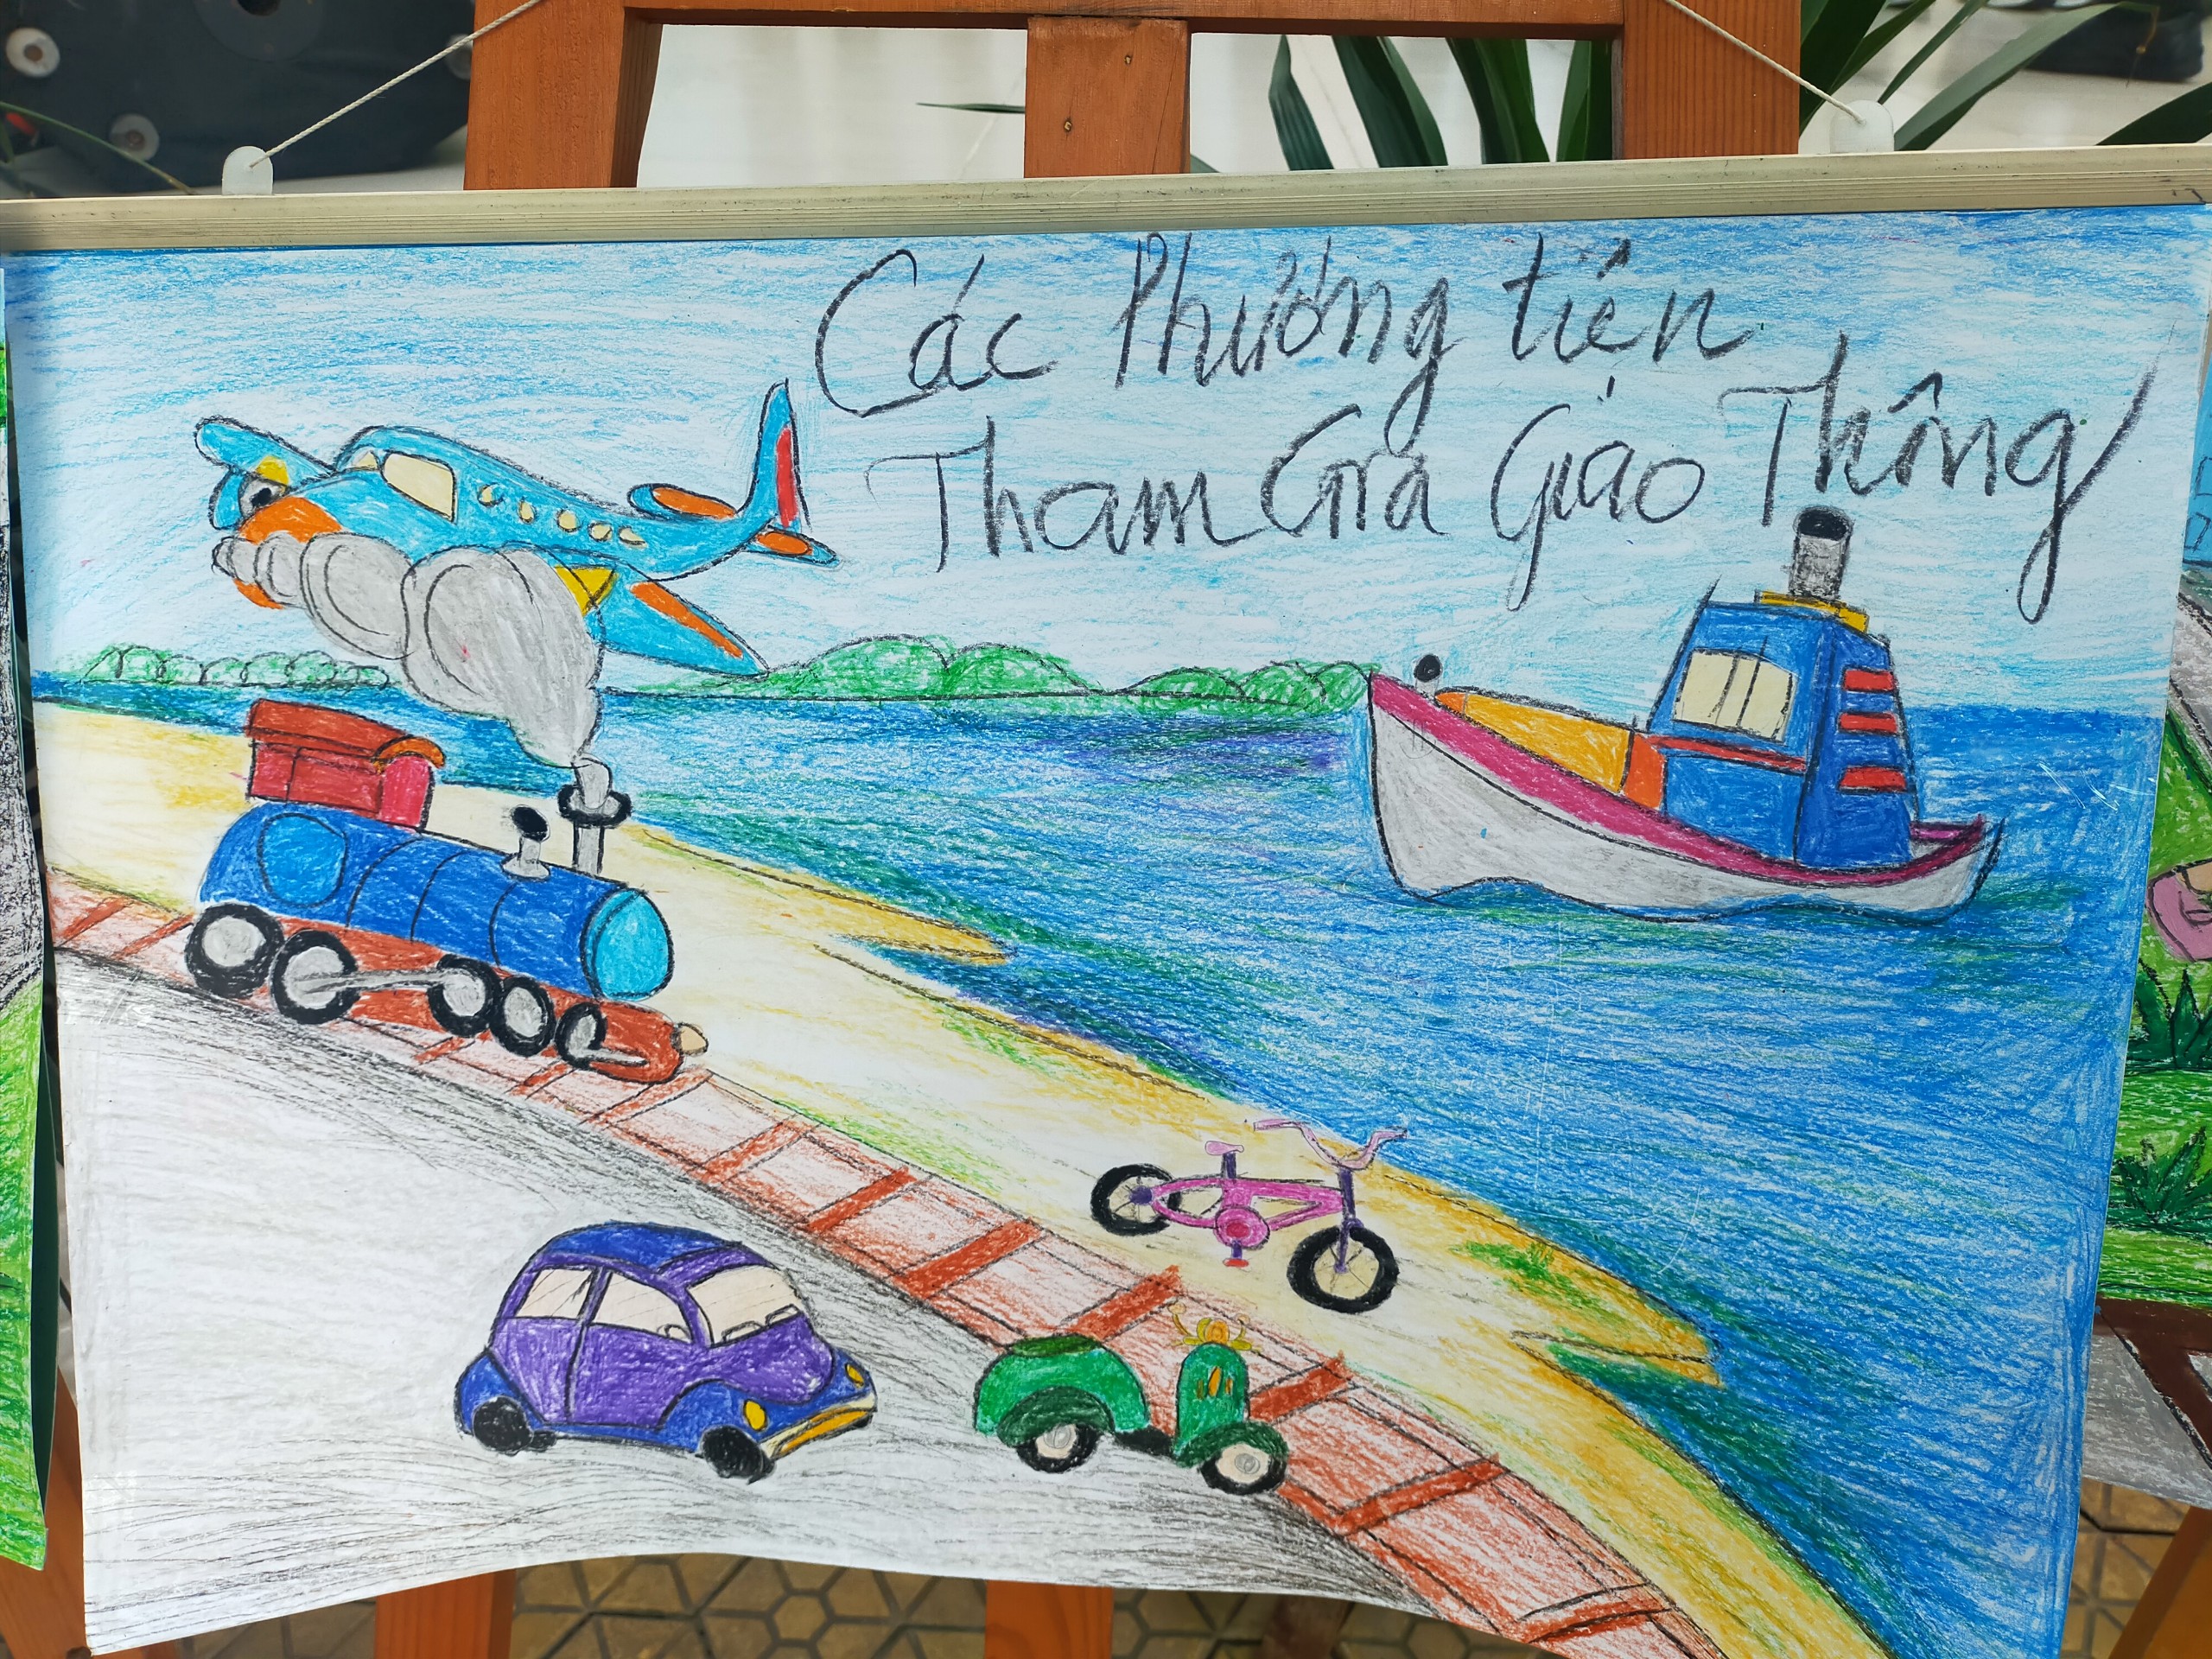 Các Phương tiện
Tham Gia Giao Thông